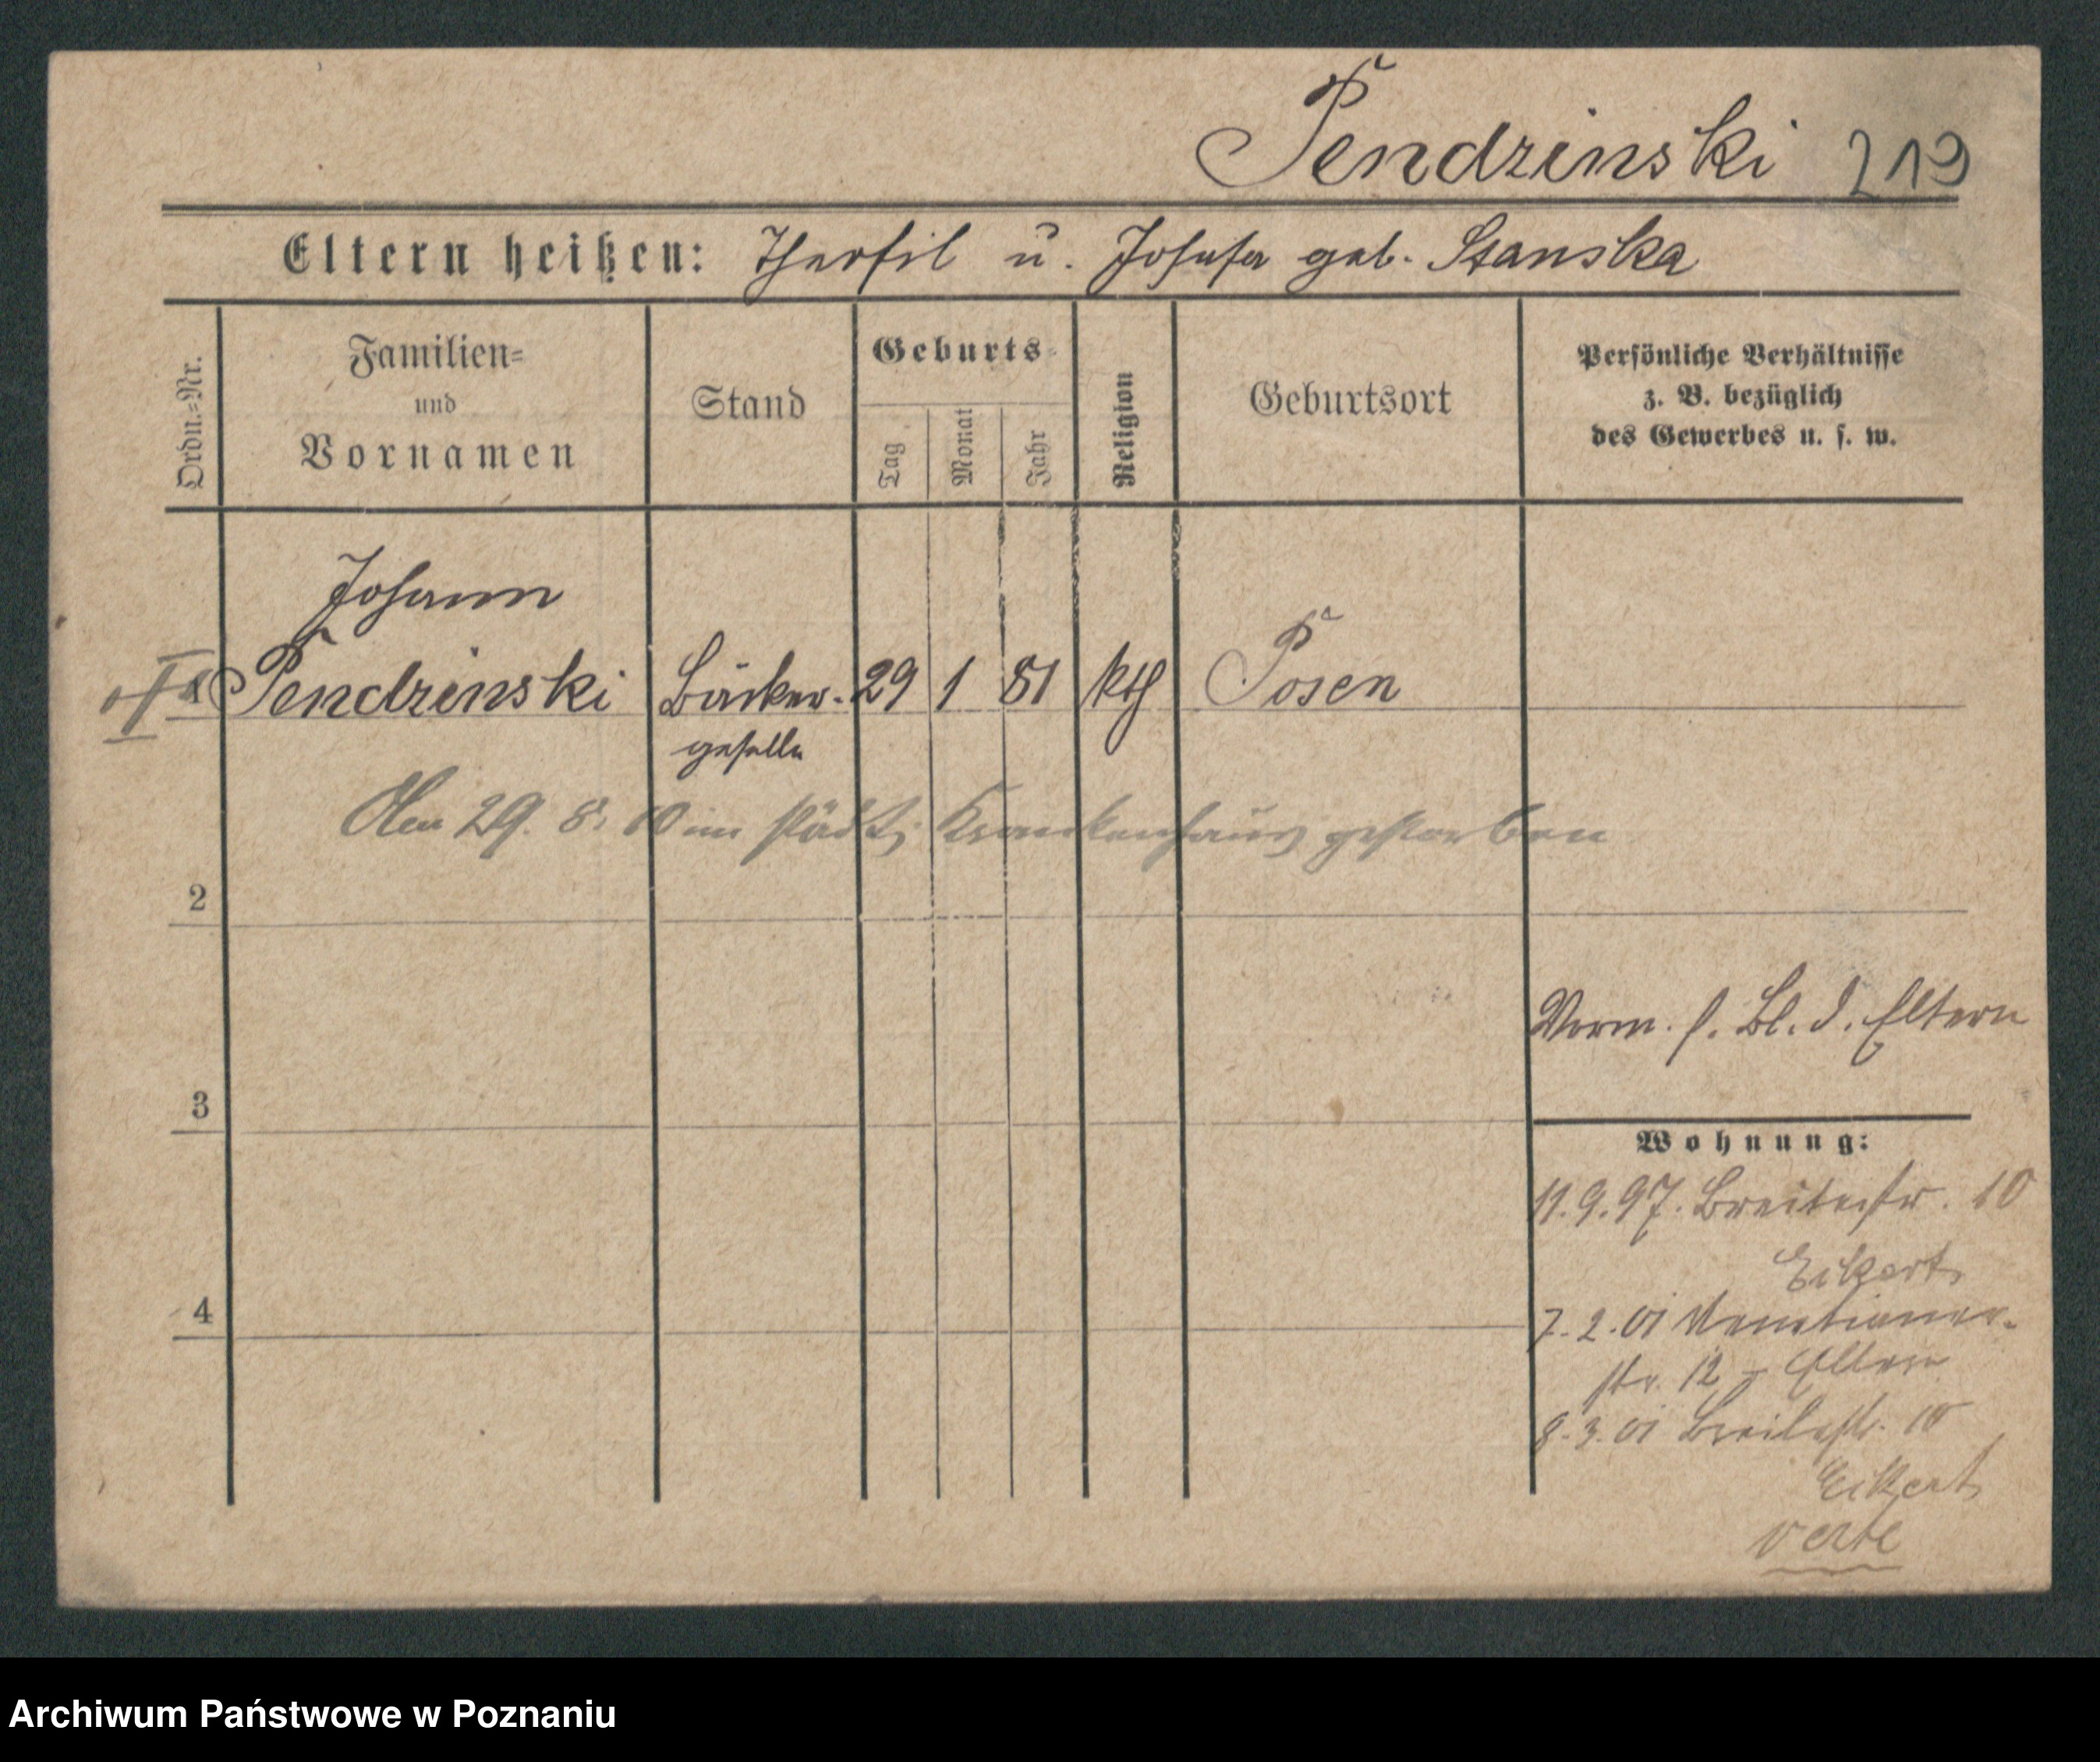 Pendzinski 219
Eltern heißen: Theofil u. Josefa geb. Stanska
Ordn.=Nr.
Familien=
und
Vornamen
Stand
Geburts=
Tag
Monat
Jahr
Religion
Geburtsort
Persönliche Verhältnisse
z. B. bezüglich
des Gewerbes u. s. w.
Johann
1 Pendzinski Bäcker- 29 1 81 kth Posen
geselle
Den 29. 8. 10 im städt. Krankenhaus gestorben
2
Verm. s. Bl. d. Eltern
3
Wohnung:
11.9.97. Breitestr. 10
Eckert
4
7.2.01 Venetianer-
str. 12 - Eltern
8.3.01 Breitestr. 10
Eckert
verte
Archiwum Państwowe w Poznaniu